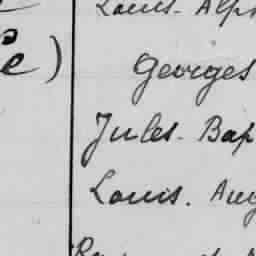 Louis. Alph
Georges
Jules. Bap
Louis. Aug